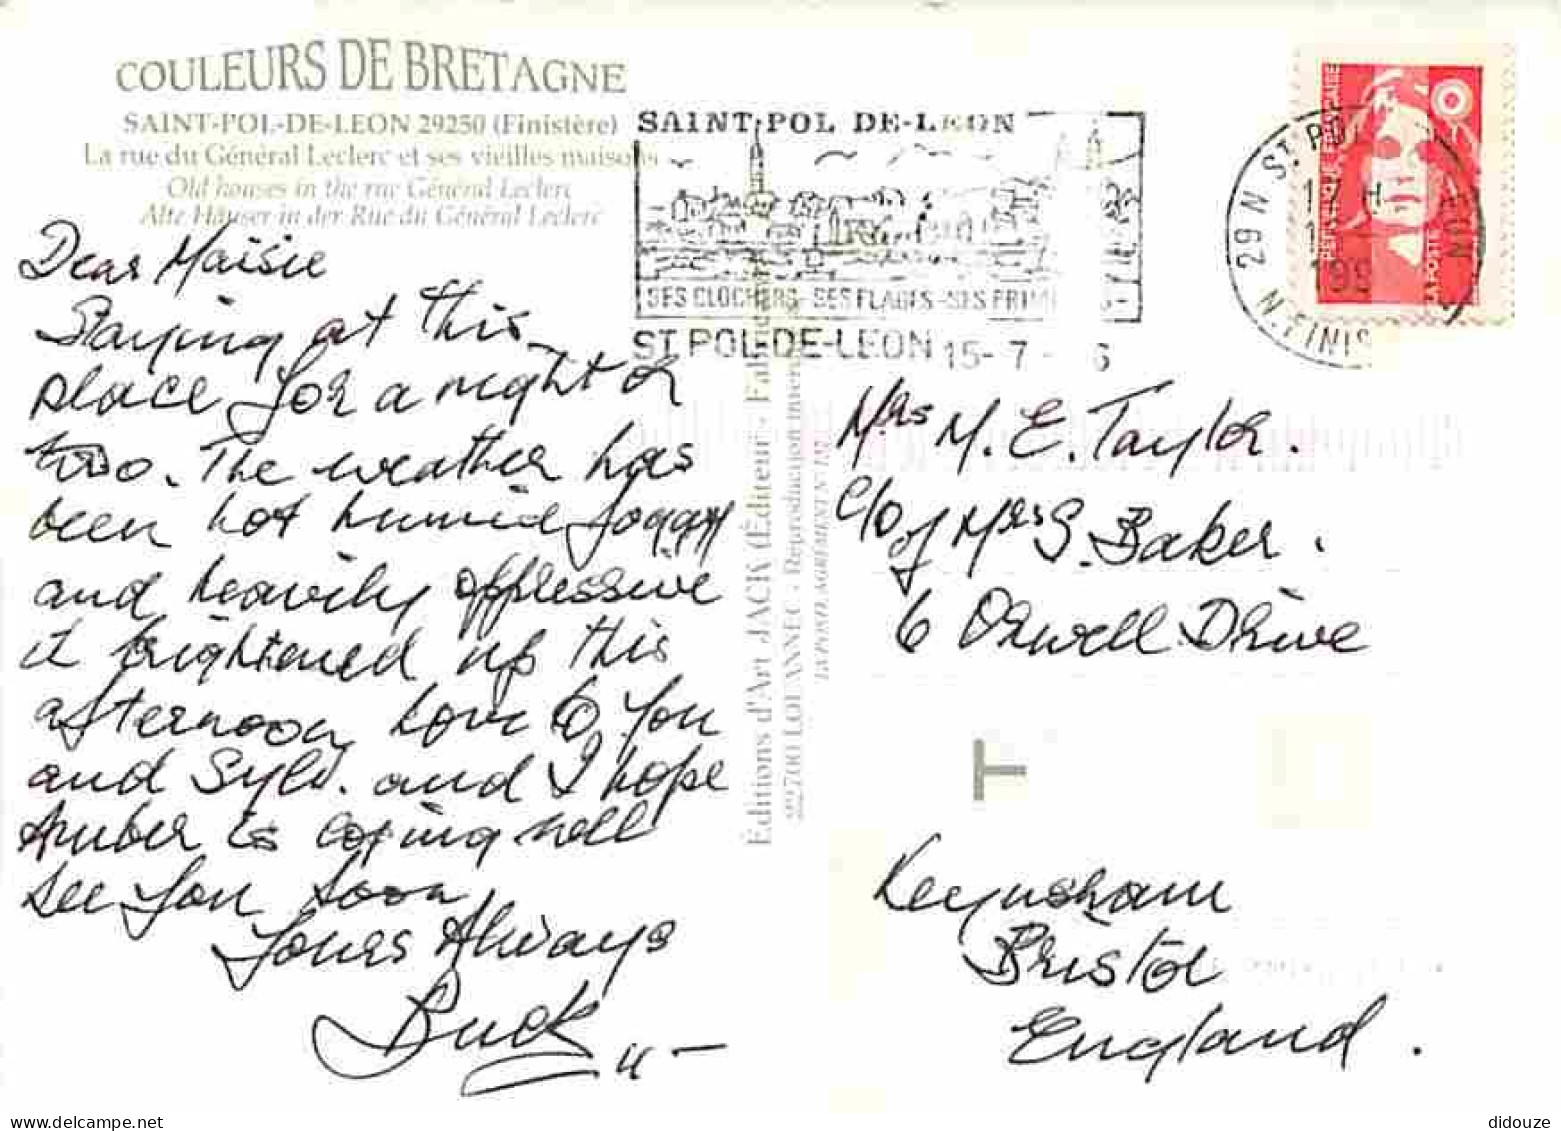 COULEURS DE BRETAGNE
SAINT-POL-DE-LEON 29250 (Finistère)
La rue du Général Leclerc et ses vieilles maisons
Old houses in the rue Général Leclerc
Alte Häuser in der Rue du Général Leclerc
SAINT POL DE-LEON
SES CLOCHERS - SES PLAGES - SES PRIM
ST POL-DE-LEON 15-7- 6
REPUBLIQUE FRANCAISE
LA POSTE
29 N ST POL LEON
17 H
199
N. FINIS
Dear Maisie
Staying at this
place for a night or
two. The weather has
been hot humid foggy
and heavily oppressive
it brightened up this
afternoon, love to you
and Sylv. and I hope
Amber is coping well
see you soon
Yours Always
Buck
Éditions d'Art JACK (Éditeur - Fabricant)
22700 LOUANNEC - Reproduction inter
LA POSTE AGREMENT N° 132
Mrs M. E. Taylor.
c/o of Mrs S. Baker.
6 Orwell Drive
Keynsham
Bristol
England.
didouze